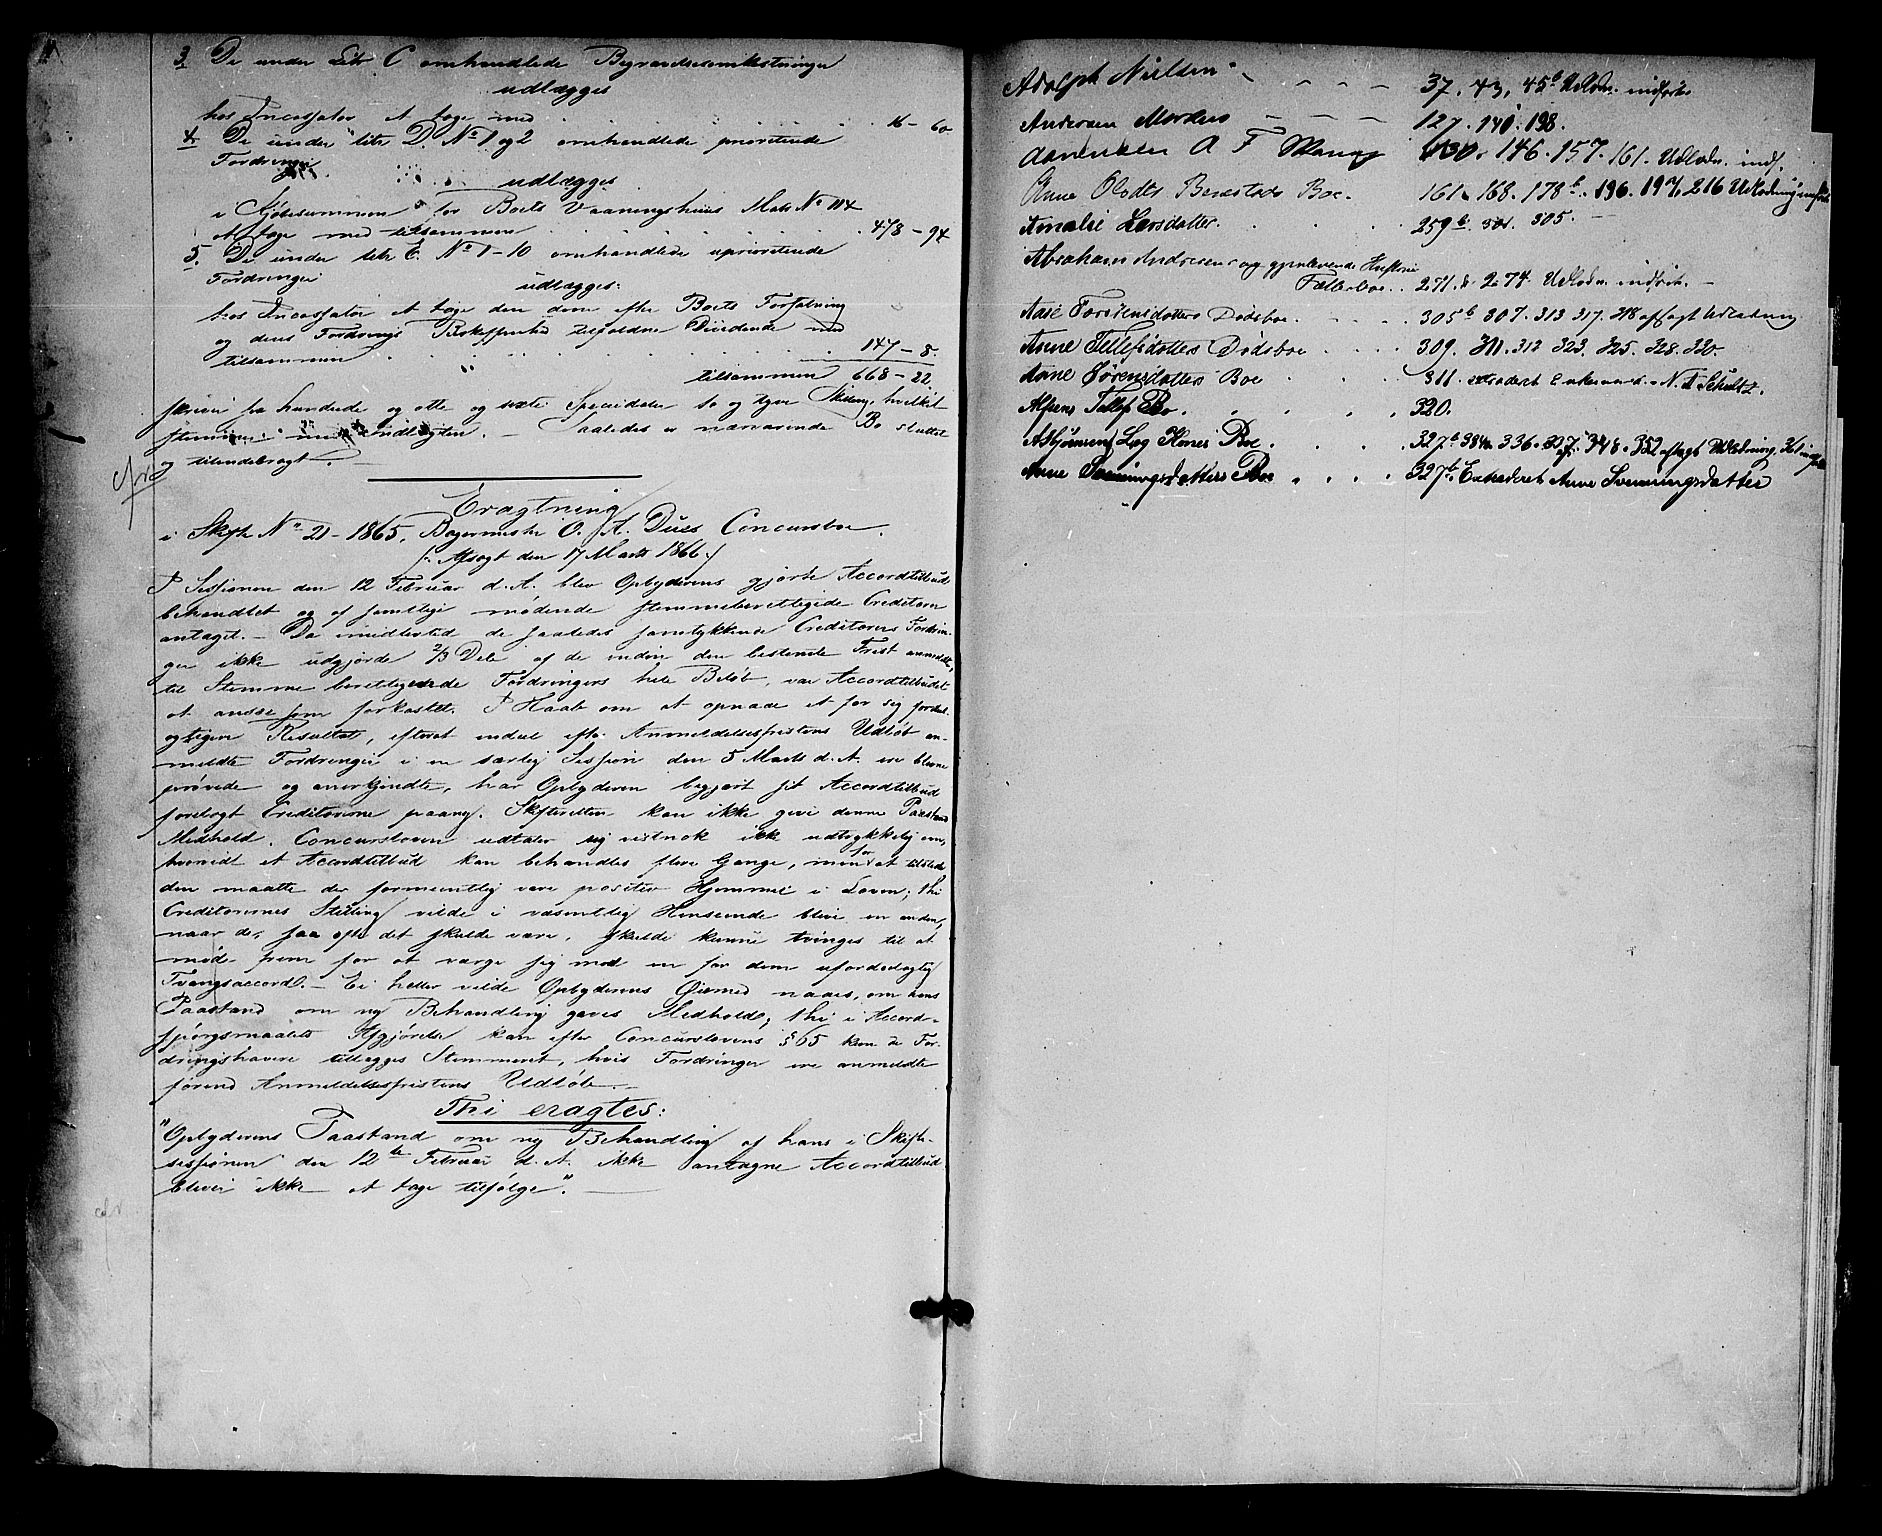 3. De under Litr C omhandlede Begravelsesomkostninger
udlægges
hos Incassator at tage med 16-60
4. De under litr D. No 1 og 2 omhandlede prioriterede
Fordringer
udlægges
i Kjøbesummen for Boets Vaaningshuus Matr No 114
at tage med tilsammen 478-94
5. De under litr E. No 1-10 omhandlede uprioriterede
Fordringer
udlægges:
hos Incassator at tage den dem efter Boets Forfatning
og deres Fordrings Beskaffenhed tilfaldne Dividende med
tilsammen 147-8.
tilsammen 668-22
skriver sex hundrede og otte og sexti Specidaler to og tyve Skilling, hvilket
stemmer med indtægten. - Saaledes er nærværende Bo sluttet
og tilendebragt. -
cfr
Eragtning
i Skifte No 21-1865, Bagermester O. A. Dues Concursbo.
/: Afsagt den 17 Marts 1866 :/
I Sessionen den 12 Februar d. A. blev Opbyderens gjorte Accordtilbud
behandlet og af samtlige mødende stemmeberettigede Creditorer
antaget. - Da imidlertid de saaledes samtykkende Creditorers Fordrin-
ger ikke udgjorde 2/3 Dele af de inden den bestemte Frist anmeldte,
til Stemme berettigende Fordringers hele Beløb, var Accordtilbudet
at ansee som forkastet. I Haab om at opnaae et for sig fordeel-
agtigere Resultat, efterat endeel efter Anmeldelsesfristens Udløb an-
meldte Fordringer i en særlig Session den 5 Marts d. A. ere blevne
prøvede og anerkjendte, har Opbyderen begjært sit Accordtilbud
forelagt Creditorerne paany. Skifteretten kan ikke give denne Paastand
Medhold. Concursloven udtaler sig vistnok ikke udtrykkelig om,
hvorvidt et Accordtilbud kan behandles flere Gange, men for at tilstede
den maatte der formeentlig være positiv Hjemmel i Loven; thi
Creditorernes Stilling vilde i væsentlig Henseende blive en anden,
naar de, saa ofte det skulde være, skulde kunne tvinges til at
møde frem for at værge sig mod en for dem ufordelagtig
Tvangsaccord. - Ei heller vilde Opbyderens Øiemed naaes, om hans
Paastand om ny Behandling gaves Medhold; thi i Accord-
spørgsmaalets Afgjørelse kan efter Concurslovens § 65 kun de For-
dringshavere tillægges Stemmeret, hvis Fordringer ere anmeldte
førend Anmeldelsesfristens Udløb. -
Thi eragtes:
"Opbyderens Paastand om ny Behandling af hans i Skifte-
sessionen den 12te Februar d. A. ikke antagne Accordtilbud
bliver ikke at tage tilfølge". -
Adolph Nielsen - 37. 43, 45b Udlodn. indført.
Andersen Mordens 127. 140. 198.
A F 130. 146. 157. 161. Udlodn. indf.
Anne Olsdtr Berestads Boe. 161. 168. 178b. 196. 197. 216 Udlodning indført
Amalie Larsdatter. 259b. 301. 305. -
Abraham Andresens og gjenlevende Hustrues
Fællesboe. 271. & 274. Udlodn. indført. -
Aase Torstensdatters Dødsboe. 305b 307. 313 317. 318 afsagt Udlodning
Anne Tellefsdatters Dødsboe 309. 311. 312 323. 325. 328. 330.
Anne Sørensdatters Boe 311. extraderet Enkemand. N. Schultz.
Alfsens Tellef Bo. 320.
Asbjørnsens Log Kones Boe. 327b 334. 336. 337. 348. 352 afsagt Udlodning. 361 indført
Anne Svenningsdatters Boe 327b. Extraderet Anne Svenningsdatter